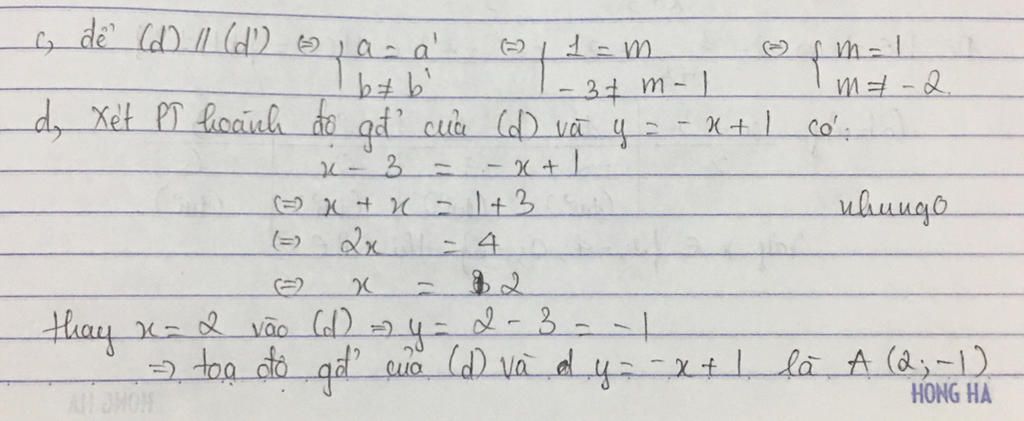 c, để (d) // (d') ⇔ { a = a' ⇔ { 1 = m ⇔ { m = 1
b ≠ b' -3 ≠ m - 1 m ≠ -2
d, Xét PT hoành độ gđ' của (d) và y = -x + 1 có:
x - 3 = -x + 1
⇔ x + x = 1 + 3
nhungo
⇔ 2x = 4
⇔ x = 2
thay x = 2 vào (d) ⇒ y = 2 - 3 = -1
⇒ toạ độ gđ' của (d) và đ y = -x + 1 là A (2; -1)
HONG HA